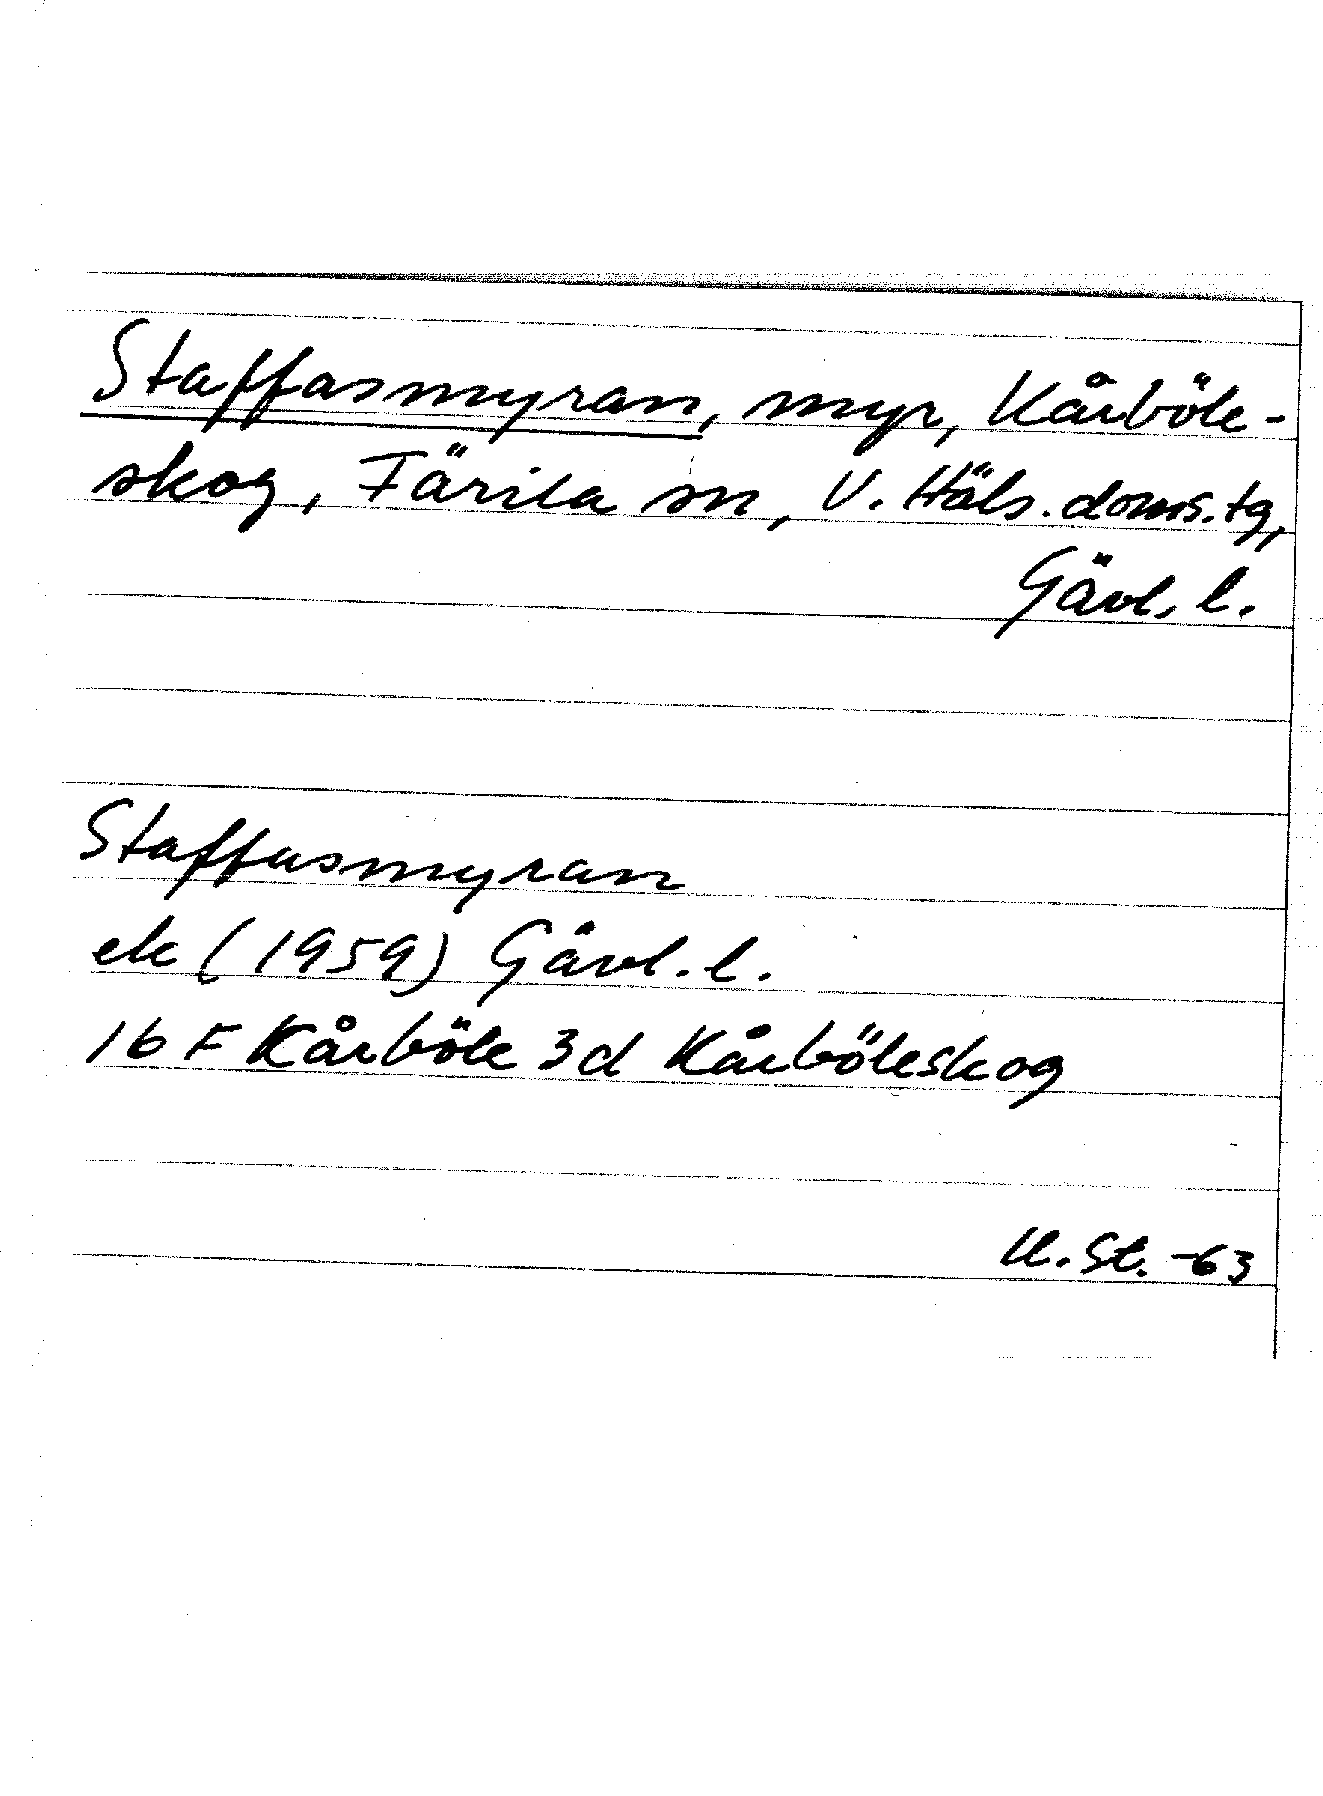 Staffasmyran, myr, Kårböle-
skog, Färila sn, V. Häls. doms. tg,
Gävl. l.
Staffasmyran
ek (1959) Gävl. l.
16 F Kårböle 3d Kårböleskog
U. St. -63